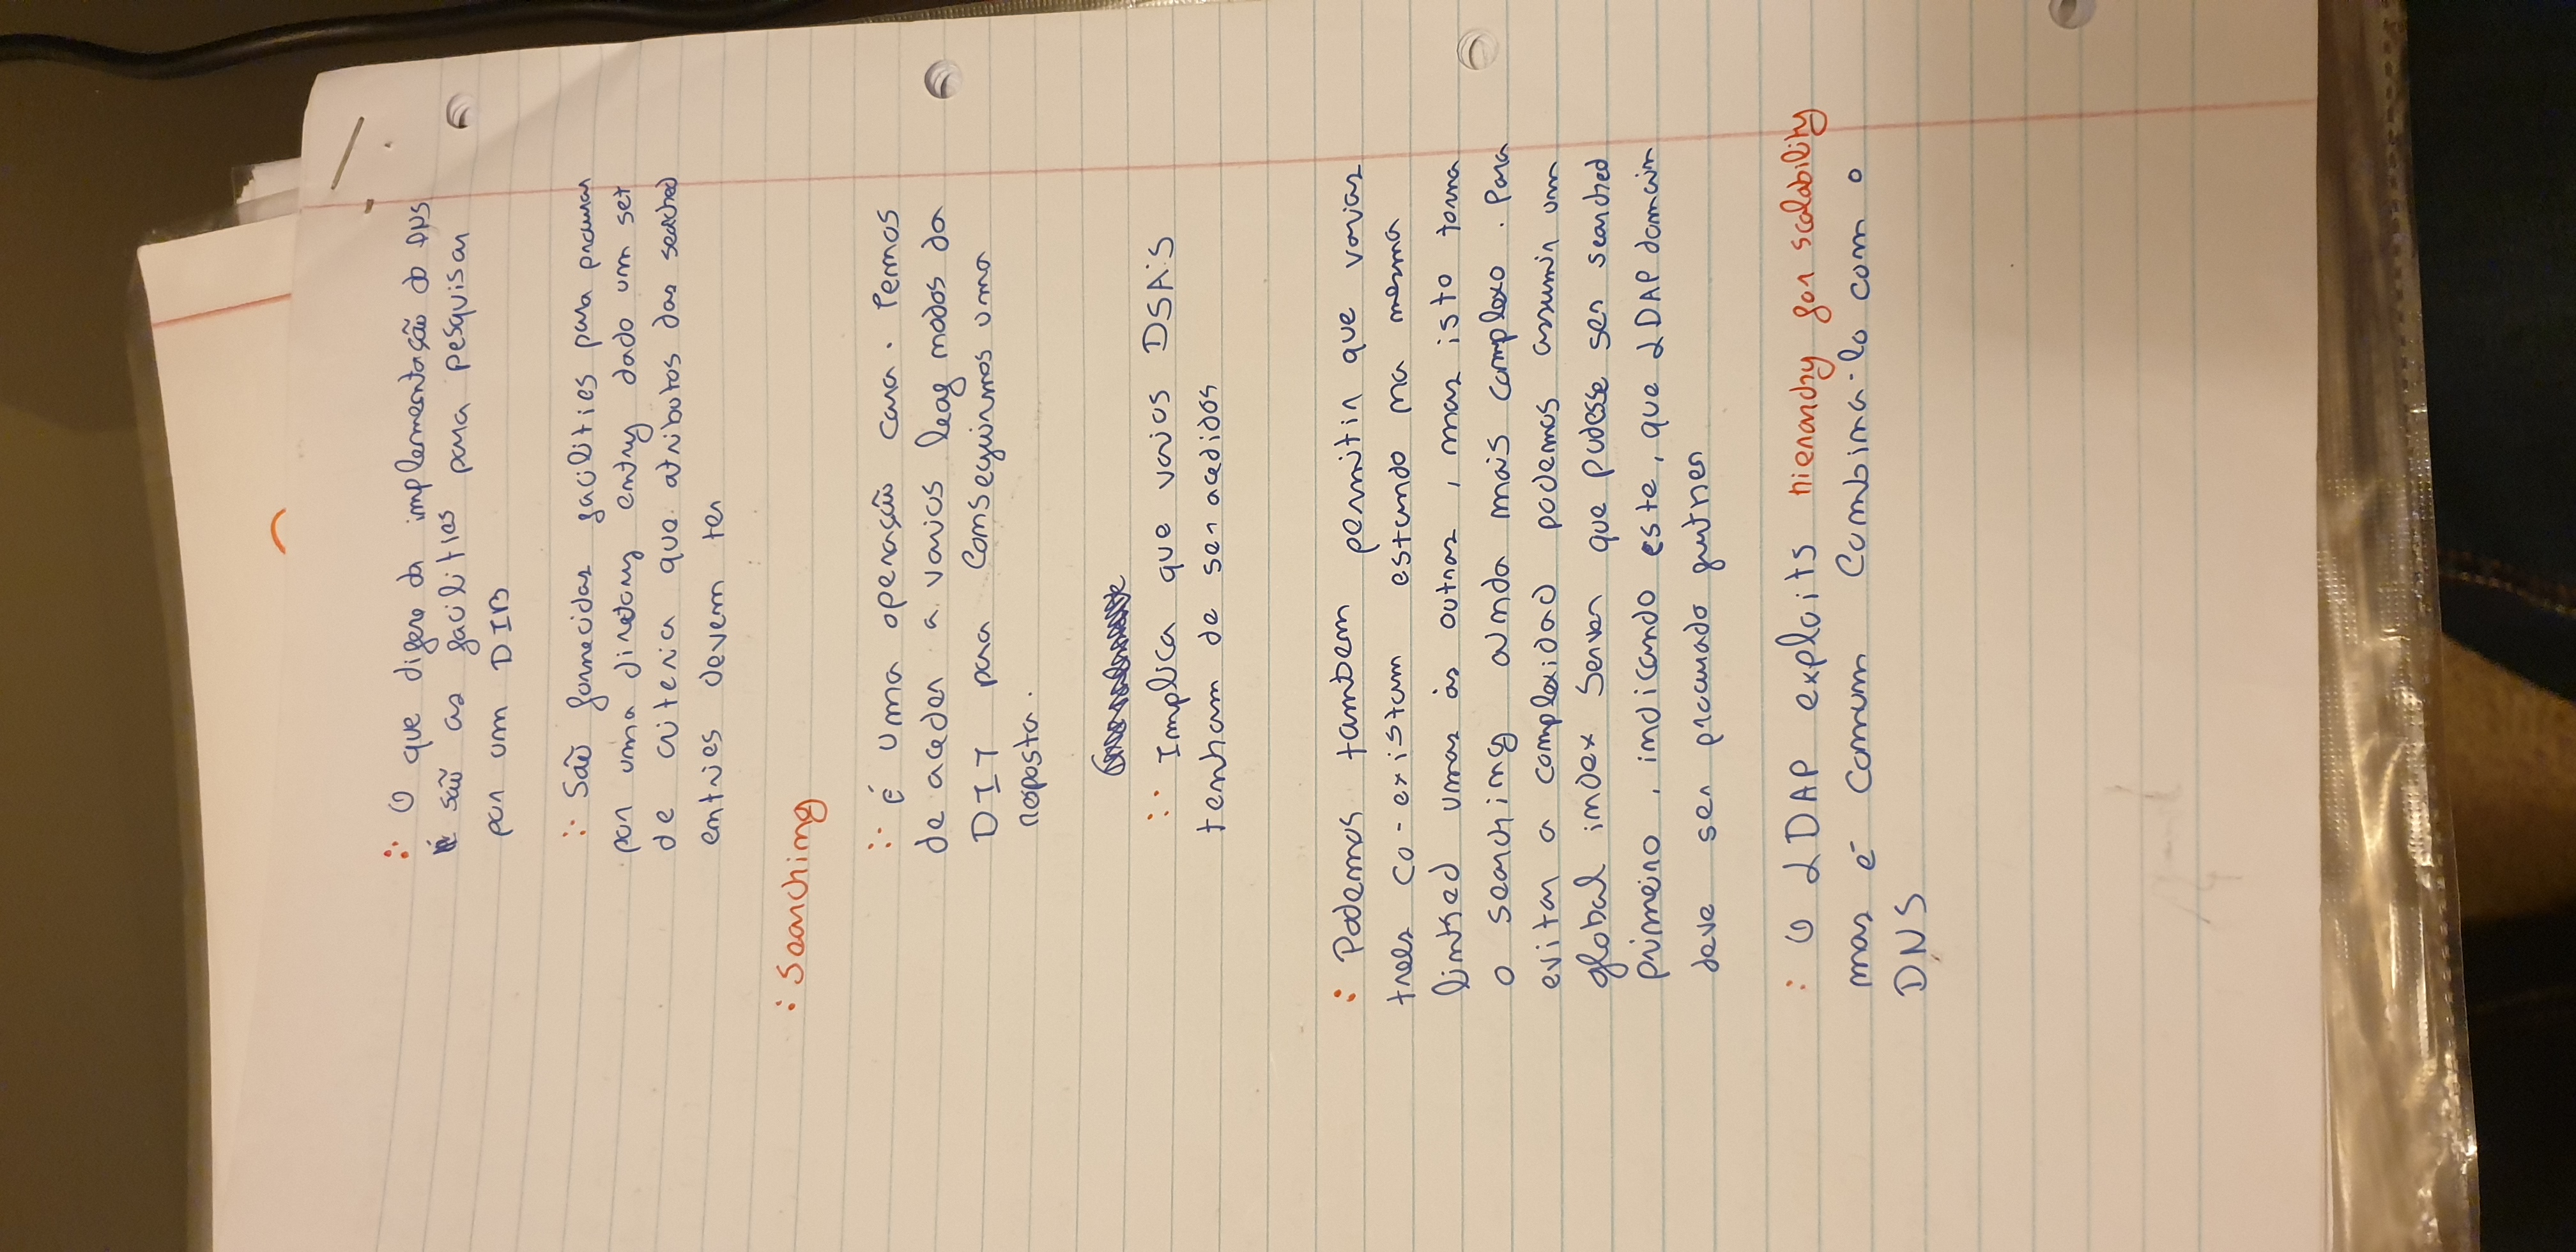 ∴ O que difere da implementação do DNS
é são as facilities para pesquisar
por um DIB
∴ São fornecidas facilities para procurar
por uma diretory entry dado um set
de criteria que atributos das searched
entries devem ter
: Searching
∴ É uma operação cara. Temos
de aceder a varios leaf nodos da
DIT para conseguirmos uma
resposta.
∴ Implica que varios DSA's
tenham de ser acedidos
: Podemos tambem permitir que varias
trees co-existam estando na mesma
linked umas às outras, mas isto torna
o searching ainda mais complexo. Para
evitar a complexidad podemos assumir um
global index Server que pudesse ser searched
primeiro, indicando este, que LDAP domain
deve ser procurado further
: O LDAP exploits hierarchy for scalability
mas é comum combina-lo com o
DNS